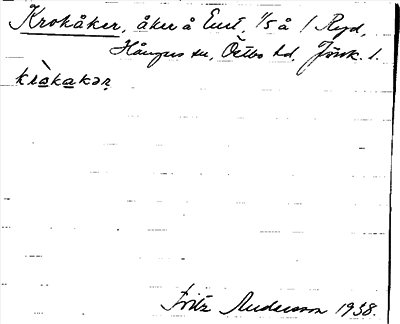 Krokåker, åker å Enet, 1/5 å 1 Ryd,
Hångers sn, Östbo hd, Jönk. l.
kròkakər
Fritz Andersson 1938.